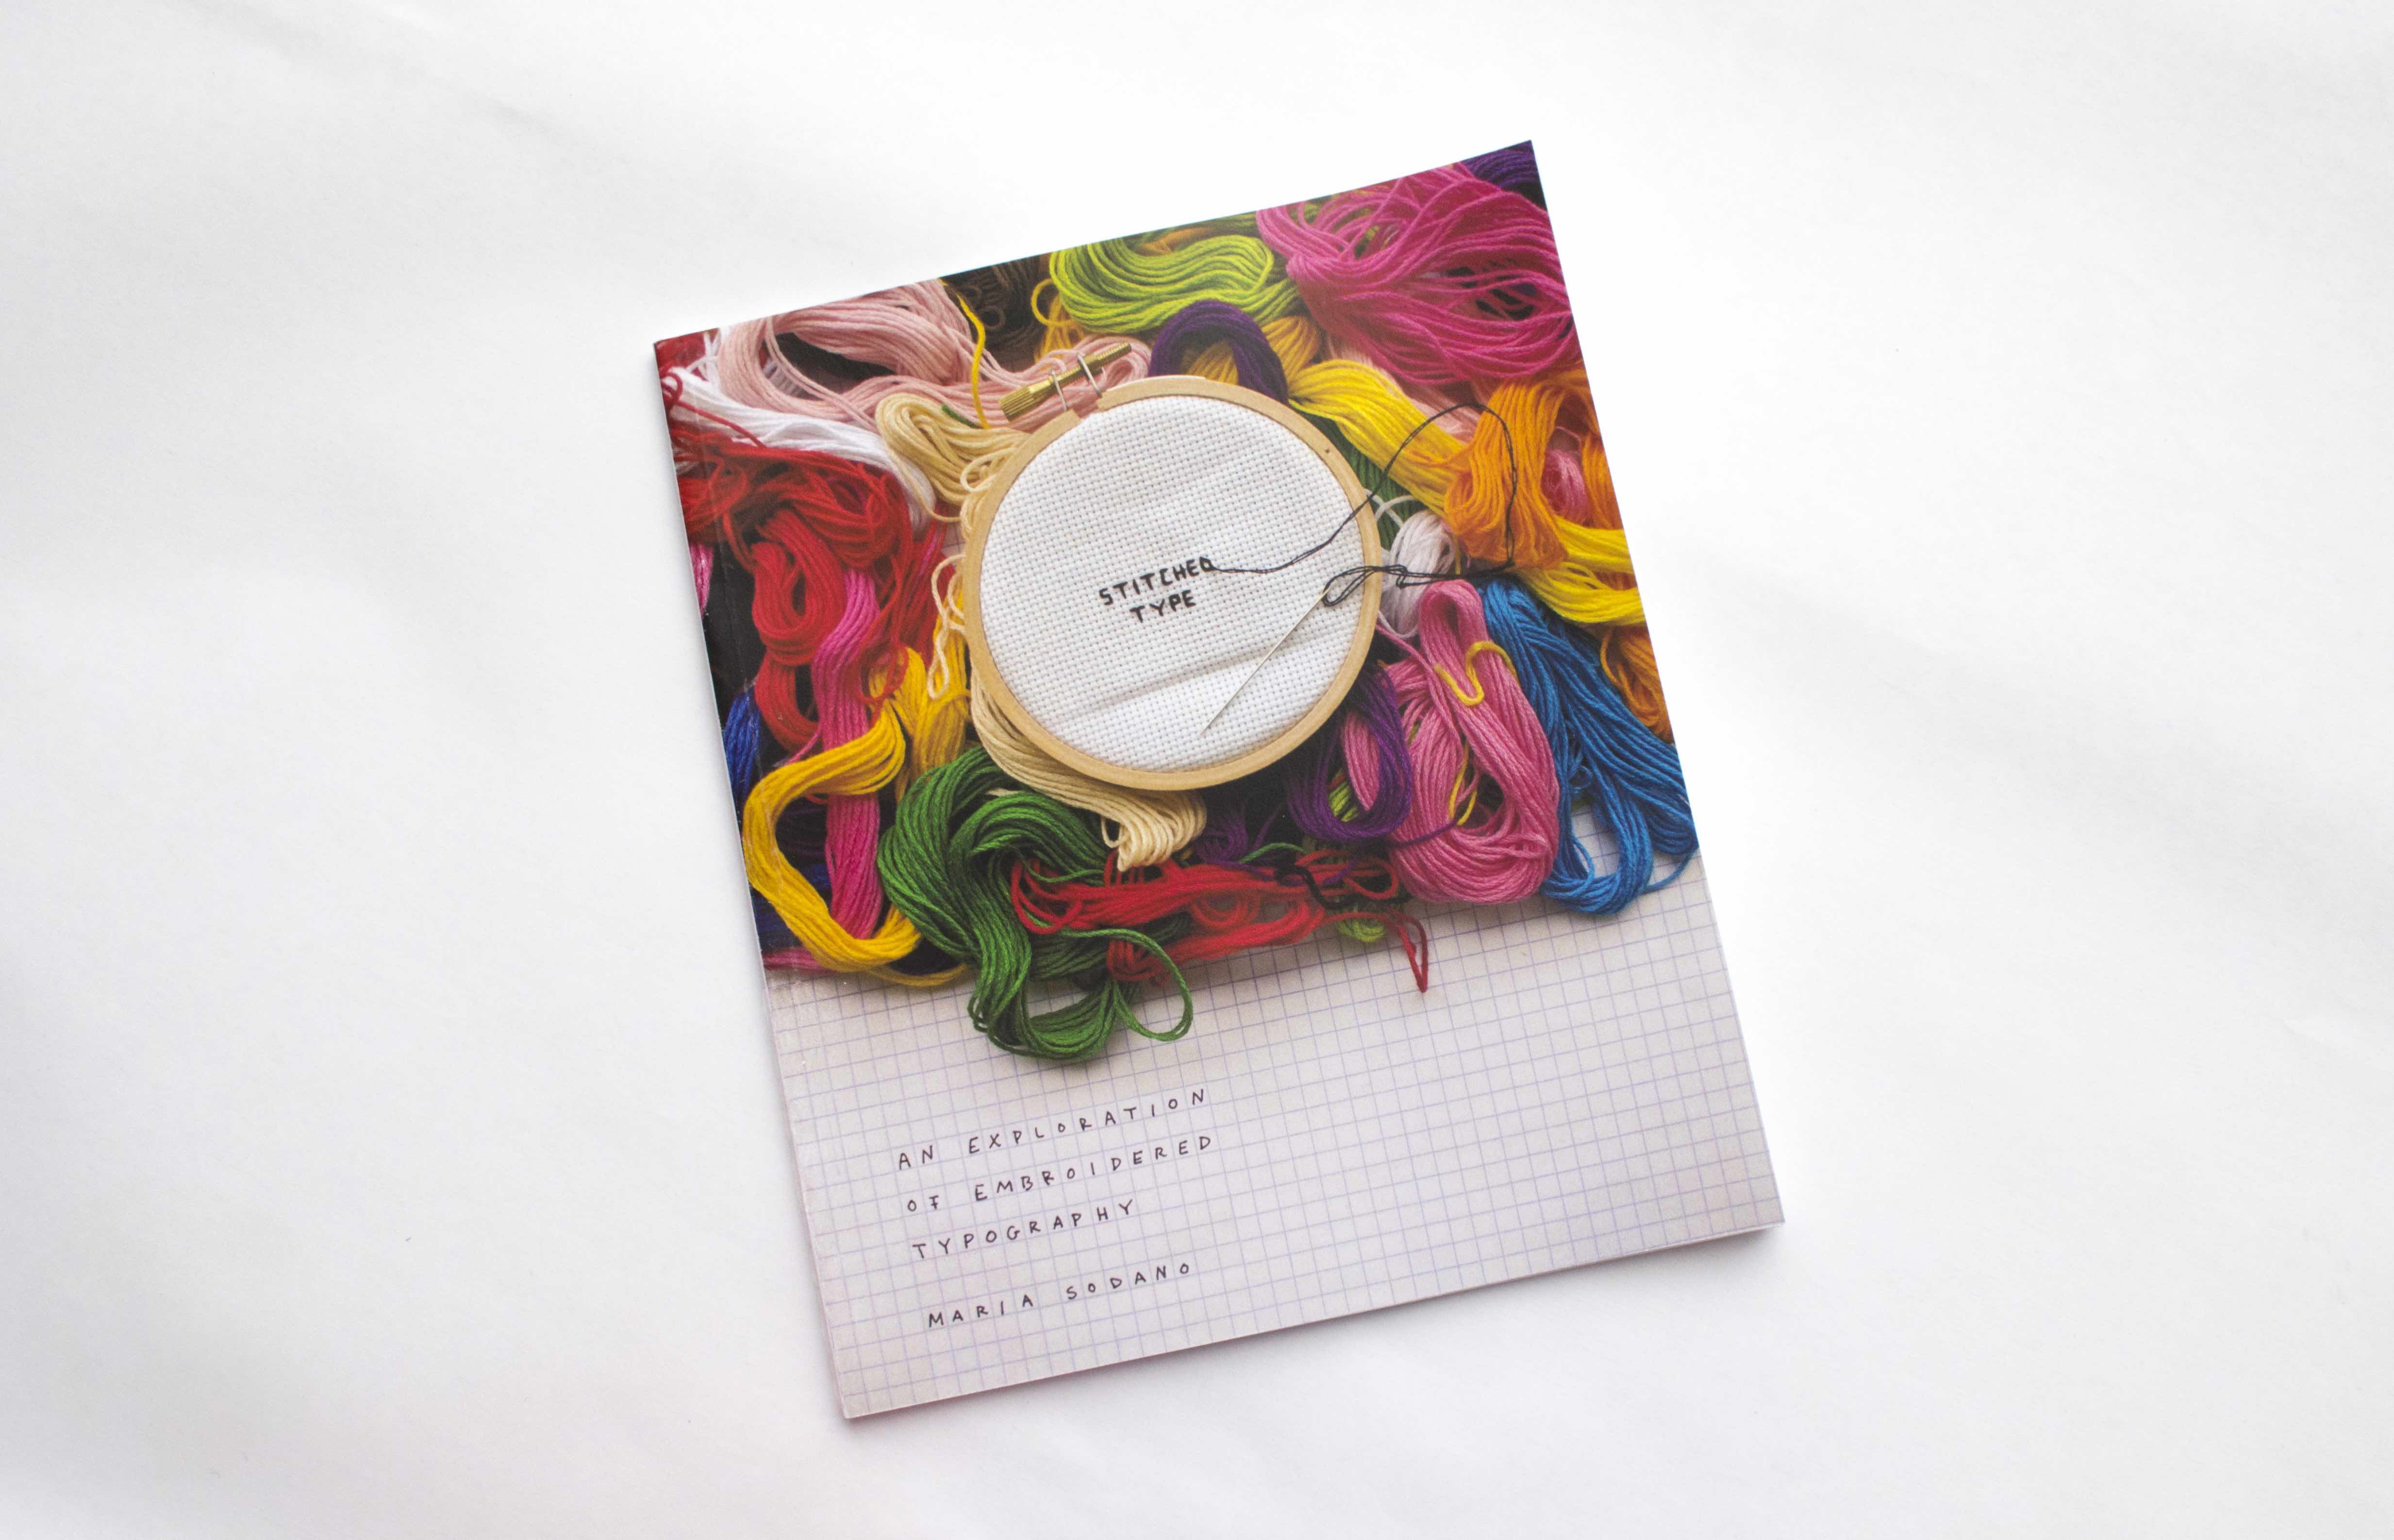 STITCHED
TYPE
AN EXPLORATION
OF EMBROIDERED
TYPOGRAPHY
MARIA SODANO